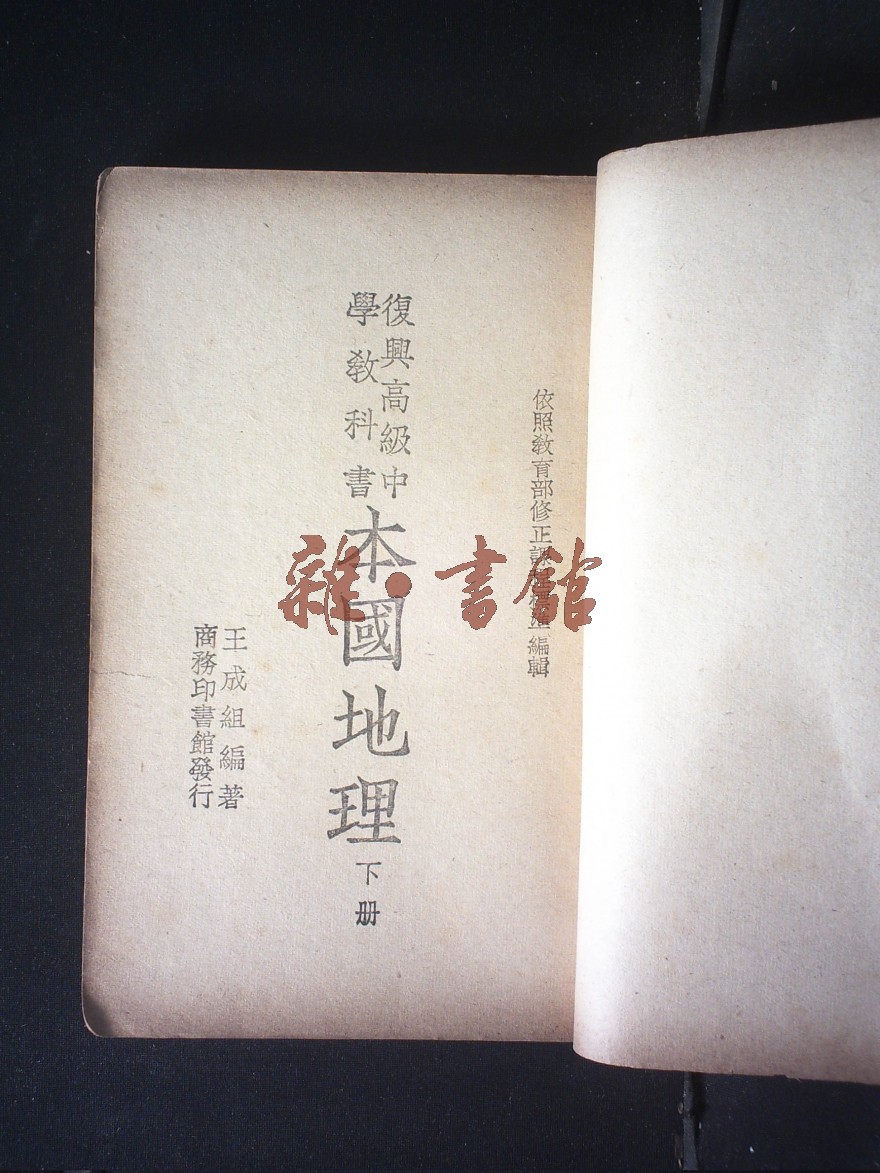 依照教育部修正課程標準編輯
復興高級中
學教科書
本國地理下册
王成組編著
商務印書館發行
雜·書館